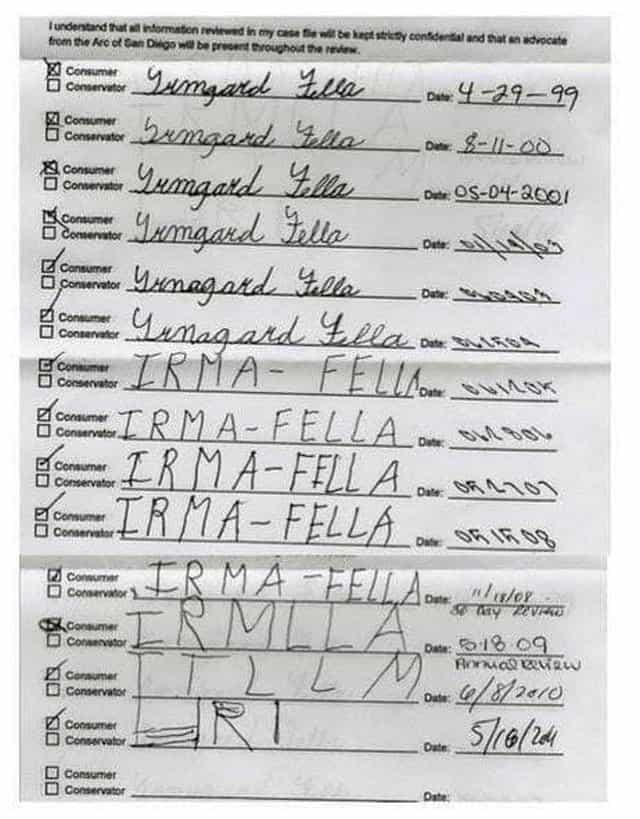 I understand that all information reviewed in my case file will be kept strictly confidential and that an advocate
from the Arc of San Diego will be present throughout the review.
Consumer
Conservator Irmgard Fella Date: 4-29-99
Consumer
Conservator Irmgard Fella Date: 8-11-00
Consumer
Conservator Irmgard Fella Date: 05-04-2001
Consumer
Conservator Irmgard Fella Date:
Consumer
Conservator Irmagard Fella Date:
Consumer
Conservator Irmagard Fella Date:
Consumer
Conservator IRMA- FELLA Date:
Consumer
Conservator IRMA-FELLA Date:
Consumer
Conservator IRMA-FELLA Date:
Consumer
Conservator IRMA-FELLA Date: 051508
Consumer
Conservator IRMA-FELLA Date: 11/18/08
30 Day Review
Consumer
Conservator IRMLLA Date: 5-18-09
Annual Review
Consumer
Conservator ITLLM Date: 6/8/2010
Consumer
Conservator RI Date: 5/16/2011
Consumer
Conservator Date: